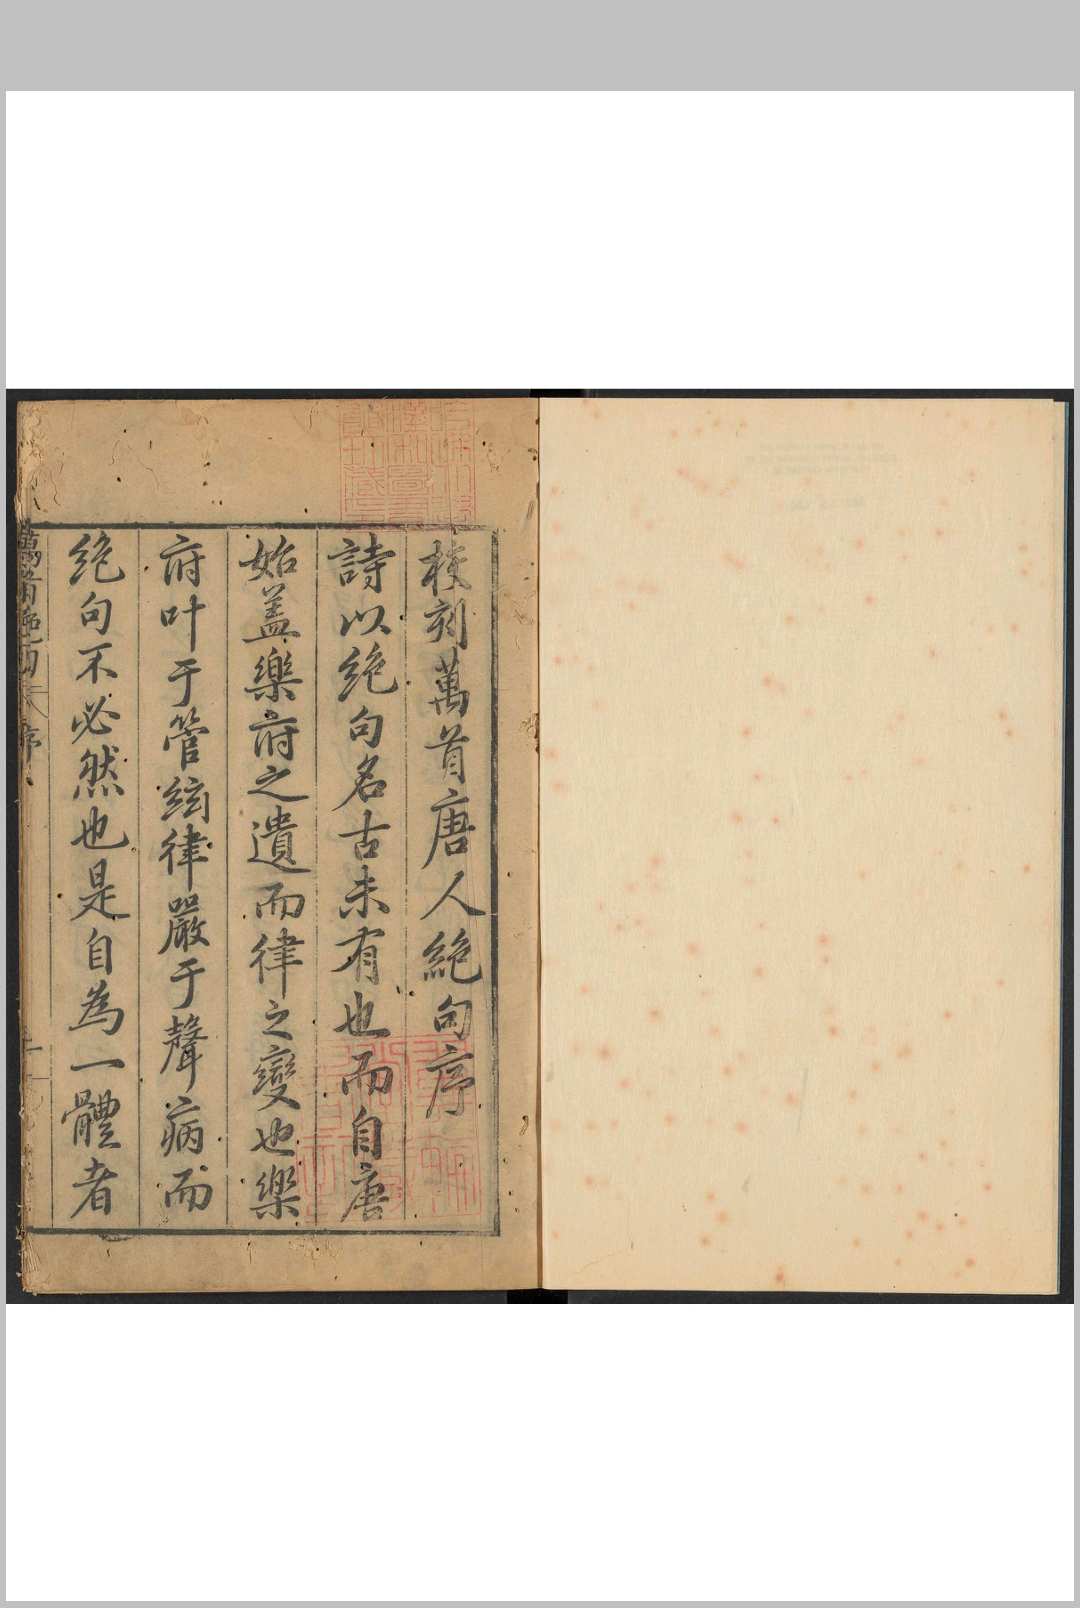 校刻萬首唐人絶句序
詩以絶句名古未有也而自唐
始蓋樂府之遺而律之變也樂
府叶于管絃律嚴于聲病而
絶句不必然也是自為一體者
萬首絶句 序